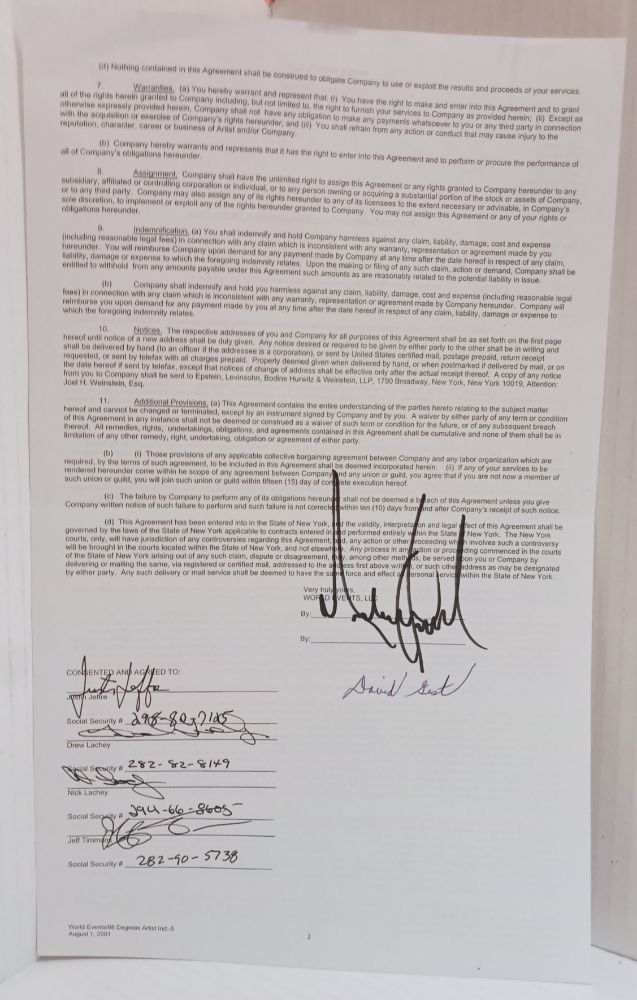 (d) Nothing contained in this Agreement shall be construed to obligate Company to use or exploit the results and proceeds of your services.
7. Warranties. (a) You hereby warrant and represent that: (i) You have the right to make and enter into this Agreement and to grant
all of the rights herein granted to Company including, but not limited to, the right to furnish your services to Company as provided herein; (ii) Except as
otherwise expressly provided herein, Company shall not have any obligation to make any payments whatsoever to you or any third party in connection
with the acquisition or exercise of Company's rights hereunder; and (iii) You shall refrain from any action or conduct that may cause injury to the
reputation, character, career or business of Artist and/or Company.
(b) Company hereby warrants and represents that it has the right to enter into this Agreement and to perform or procure the performance of
all of Company's obligations hereunder.
8. Assignment. Company shall have the unlimited right to assign this Agreement or any rights granted to Company hereunder to any
subsidiary, affiliated or controlling corporation or individual, or to any person owning or acquiring a substantial portion of the stock or assets of Company,
or to any third party. Company may also assign any of its rights hereunder to any of its licensees to the extent necessary or advisable, in Company's
sole discretion, to implement or exploit any of the rights hereunder granted to Company. You may not assign this Agreement or any of your rights or
obligations hereunder.
9. Indemnification. (a) You shall indemnify and hold Company harmless against any claim, liability, damage, cost and expense
(including reasonable legal fees) in connection with any claim which is inconsistent with any warranty, representation or agreement made by you
hereunder. You will reimburse Company upon demand for any payment made by Company at any time after the date hereof in respect of any claim,
liability, damage or expense to which the foregoing indemnity relates. Upon the making or filing of any such claim, action or demand, Company shall be
entitled to withhold from any amounts payable under this Agreement such amounts as are reasonably related to the potential liability in issue.
(b) Company shall indemnify and hold you harmless against any claim, liability, damage, cost and expense (including reasonable legal
fees) in connection with any claim which is inconsistent with any warranty, representation or agreement made by Company hereunder. Company will
reimburse you upon demand for any payment made by you at any time after the date hereof in respect of any claim, liability, damage or expense to
which the foregoing indemnity relates.
10. Notices. The respective addresses of you and Company for all purposes of this Agreement shall be as set forth on the first page
hereof until notice of a new address shall be duly given. Any notice desired or required to be given by either party to the other shall be in writing and
shall be delivered by hand (to an officer if the addressee is a corporation), or sent by United States certified mail, postage prepaid, return receipt
requested, or sent by telefax with all charges prepaid. Properly deemed given when delivered by hand, or when postmarked if delivered by mail, or on
the date hereof if sent by telefax, except that notices of change of address shall be effective only after the actual receipt thereof. A copy of any notice
from you to Company shall be sent to Epstein, Levinsohn, Bodine Hurwitz & Weinstein, LLP, 1790 Broadway, New York, New York 10019, Attention:
Joel H. Weinstein, Esq.
11. Additional Provisions. (a) This Agreement contains the entire understanding of the parties hereto relating to the subject matter
hereof and cannot be changed or terminated, except by an instrument signed by Company and by you. A waiver by either party of any term or condition
of this Agreement in any instance shall not be deemed or construed as a waiver of such term or condition for the future, or of any subsequent breach
thereof. All remedies, rights, undertakings, obligations, and agreements contained in this Agreement shall be cumulative and none of them shall be in
limitation of any other remedy, right, undertaking, obligation or agreement of either party.
(b) (i) Those provisions of any applicable collective bargaining agreement between Company and any labor organization which are
required, by the terms of such agreement, to be included in this Agreement shall be deemed incorporated herein. (ii) If any of your services to be
rendered hereunder come within the scope of any agreement between Company and any union or guild, you agree that if you are not now a member of
such union or guild, you will join such union or guild within fifteen (15) day of complete execution hereof.
(c) The failure by Company to perform any of its obligations hereunder shall not be deemed a breach of this Agreement unless you give
Company written notice of such failure to perform and such failure is not corrected within ten (10) days from and after Company's receipt of such notice.
(d) This Agreement has been entered into in the State of New York, and the validity, interpretation and legal effect of this Agreement shall be
governed by the laws of the State of New York applicable to contracts entered into and performed entirely within the State of New York. The New York
courts, only, will have jurisdiction of any controversies regarding this Agreement; and, any action or other proceeding which involves such a controversy
will be brought in the courts located within the State of New York, and not elsewhere. Any process in any action or proceeding commenced in the courts
of the State of New York arising out of any such claim, dispute or disagreement, may, among other methods, be served upon you or Company by
delivering or mailing the same, via registered or certified mail, addressed to the address first above written, or such other address as may be designated
by either party. Any such delivery or mail service shall be deemed to have the same force and effect as personal service within the State of New York.
Very truly yours,
WORLD EVENTS, LLC
By:
By:
David Gest
CONSENTED AND AGREED TO:
Justin Jeffre
Social Security #
Drew Lachey
Social Security #
Nick Lachey
Social Security #
Jeff Timmons
Social Security #
World Events/98 Degrees Artist Ind.-5
August 1, 2001
2